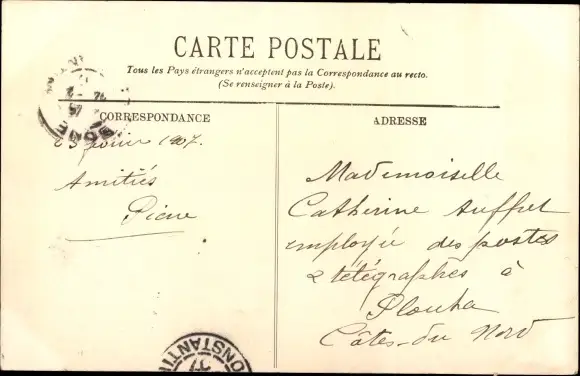 CARTE POSTALE
Tous les Pays étrangers n'acceptent pas la Correspondance au recto.
(Se renseigner à la Poste).
CORRESPONDANCE
ADRESSE
février 1907.
Amitiés
Mademoiselle
Catherine Auffret
employée des postes
& télégraphes à
Plouha
Côtes-du Nord
CONSTANTI